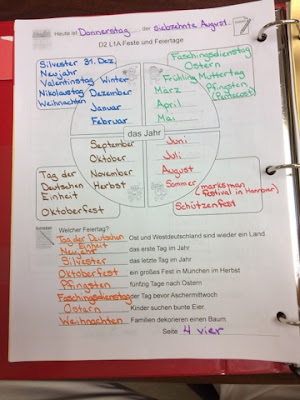 Heute ist Donnerstag der siebzehnte August.
D2 L1A Feste und Feiertage
Silvester 31. Dez.
Neujahr
Valentinstag Winter
Nikolaustag Dezember
Weihnachten
Januar
Februar
Faschingsdienstag
Ostern
Frühling Muttertag
März Pfingsten
(Pentecost)
April
Mai
das Jahr
September
Oktober
Tag der November
Deutschen Herbst
Einheit
Oktoberfest
Juni
Juli
August
Sommer (marksman
festival in Hannover)
Schützenfest
Welcher Feiertag?
Tag der Deutschen Einheit Ost und Westdeutschland sind wieder ein Land
Neujahr das erste Tag im Jahr
Silvester das letzte Tag im Jahr
Oktoberfest ein großes Fest in München im Herbst
Pfingsten fünfzig Tage nach Ostern
Faschingsdienstag der Tag bevor Aschermittwoch
Ostern Kinder suchen bunte Eier.
Weihnachten Familien dekorieren einen Baum.
Seite 4 vier